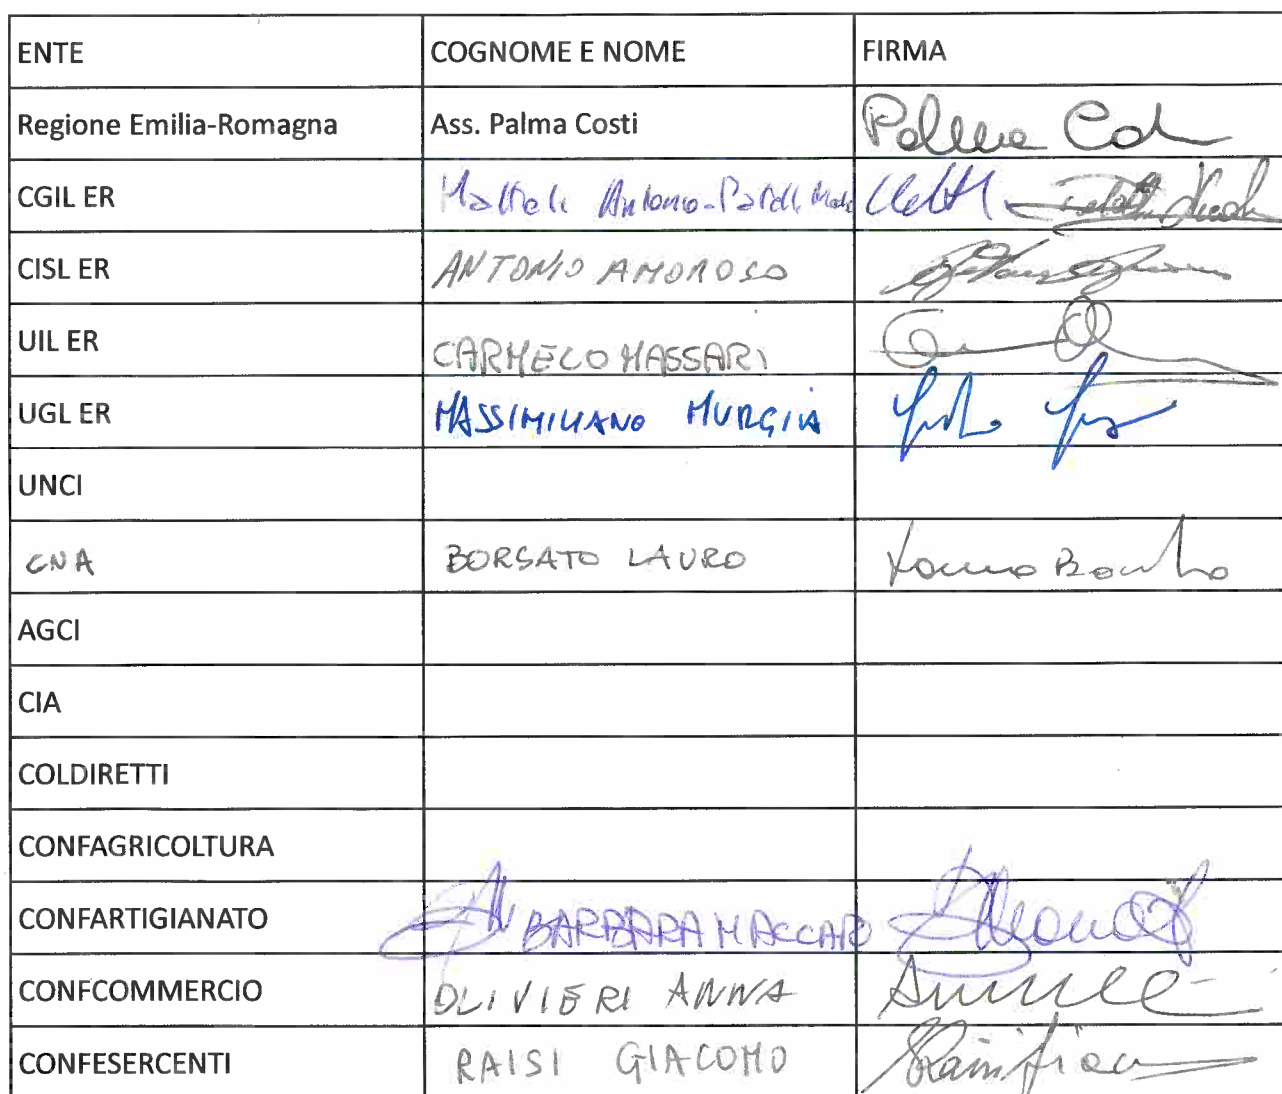 ENTE COGNOME E NOME FIRMA
Regione Emilia-Romagna Ass. Palma Costi Palma
CGIL ER Antonio
CISL ER ANTONIO AMOROSO
UIL ER CARMELO MASSARI
UGL ER MASSIMILIANO MURGIA
UNCI
CNA BORSATO LAURO
AGCI
CIA
COLDIRETTI
CONFAGRICOLTURA
CONFARTIGIANATO BARBARA MACCAR
CONFCOMMERCIO OLIVIERI ANNA
CONFESERCENTI RAISI GIACOMO